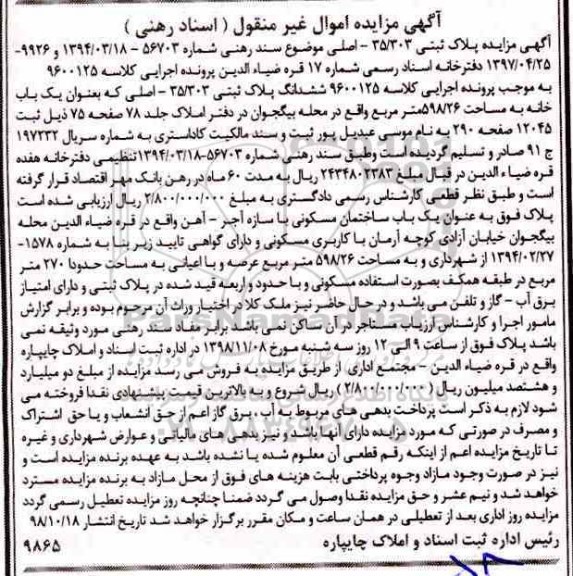 آگهی مزایده اموال غیر منقول ( اسناد رهنی )
آگهی مزایده پلاک ثبتی ۳۵/۳۰۳ - اصلی موضوع سند رهنی شماره ۵۶۷۰۳ - ۱۳۹۴/۰۳/۱۸ و ۹۹۲۶-
۱۳۹۷/۰۴/۲۵ دفترخانه اسناد رسمی شماره ۱۷ قره ضیاء الدین پرونده اجرایی کلاسه ۹۶۰۰۱۲۵
به موجب پرونده اجرایی کلاسه ۹۶۰۰۱۲۵ ششدانگ پلاک ثبتی ۳۵/۳۰۳ - اصلی که بعنوان یک باب
خانه به مساحت ۵۹۸/۲۶متر مربع واقع در محله بیگجوان در دفتر املاک جلد ۷۸ صفحه ۷۵ ذیل ثبت
۱۲۰۴۵ صفحه ۲۹۰ به نام موسی عبدیل پور ثبت و سند مالکیت کاداستری به شماره سریال ۱۹۷۲۳۲
ج ۹۱ صادر و تسلیم گردیده است وطبق سند رهنی شماره ۵۶۷۰۳-۱۳۹۴/۰۳/۱۸تنظیمی دفترخانه هفده
قره ضیاء الدین در قبال مبلغ ۲۴۳۴۸۰۲۳۸۳ ریال به مدت ۶۰ ماه در رهن بانک مهر اقتصاد قرار گرفته
است و طبق نظر قطعی کارشناس رسمی دادگستری به مبلغ ۲/۸۰۰/۰۰۰/۰۰۰ ریال ارزیابی شده است
پلاک فوق به عنوان یک باب ساختمان مسکونی با سازه آجر - آهن واقع در قره ضیاءالدین محله
بیگجوان خیابان آزادی کوچه آرمان با کاربری مسکونی و دارای گواهی تایید زیر بنا به شماره ۱۵۷۸-
۱۳۹۴/۰۲/۲۷ از شهرداری و به مساحت ۵۹۸/۲۶ متر مربع عرصه و با اعیانی به مساحت حدودا ۲۷۰ متر
مربع در طبقه همکف بصورت استفاده مسکونی و با حدود و اربعه قید شده در پلاک ثبتی و دارای امتیاز
برق آب - گاز و تلفن می باشد و در حال حاضر نیز ملک کلا در اختیار وراث آن مرحوم بوده و برابر گزارش
مامور اجرا و کارشناس ارزیاب مستاجر در آن ساکن نمی باشد برابر مفاد سند رهنی مورد وثیقه نمی
باشد پلاک فوق از ساعت ۹ الی ۱۲ روز سه شنبه مورخ ۱۳۹۸/۱۱/۰۸ در اداره ثبت اسناد و املاک چایپاره
واقع در قره ضیاء الدین - مجتمع اداری از طریق مزایده به فروش می رسد مزایده از مبلغ دو میلیارد
و هشتصد میلیون ریال (۲/۸۰۰/۰۰۰/۰۰۰) ریال شروع و به بالاترین قیمت پیشنهادی نقدا فروخته می
شود لازم به ذکر است پرداخت بدهی های مربوط به آب، برق گاز اعم از حق انشعاب و یا حق اشتراک
و مصرف در صورتی که مورد مزایده دارای آنها باشد و نیز بدهی های مالیاتی و عوارض شهرداری و غیره
تا تاریخ مزایده اعم از اینکه رقم قطعی آن معلوم شده یا نشده باشد به عهده برنده مزایده است و
نیز در صورت وجود مازاد وجوه پرداختی بابت هزینه های فوق از محل مازاد به برنده مزایده مسترد
خواهد شد و نیم عشر و حق مزایده نقدا وصول می گردد ضمنا چنانچه روز مزایده تعطیل رسمی گردد
مزایده روز اداری بعد از تعطیلی در همان ساعت و مکان مقرر برگزار خواهد شد تاریخ انتشار ۹۸/۱۰/۱۸
رئیس اداره ثبت اسناد و املاک چایپاره
۹۸۶۵